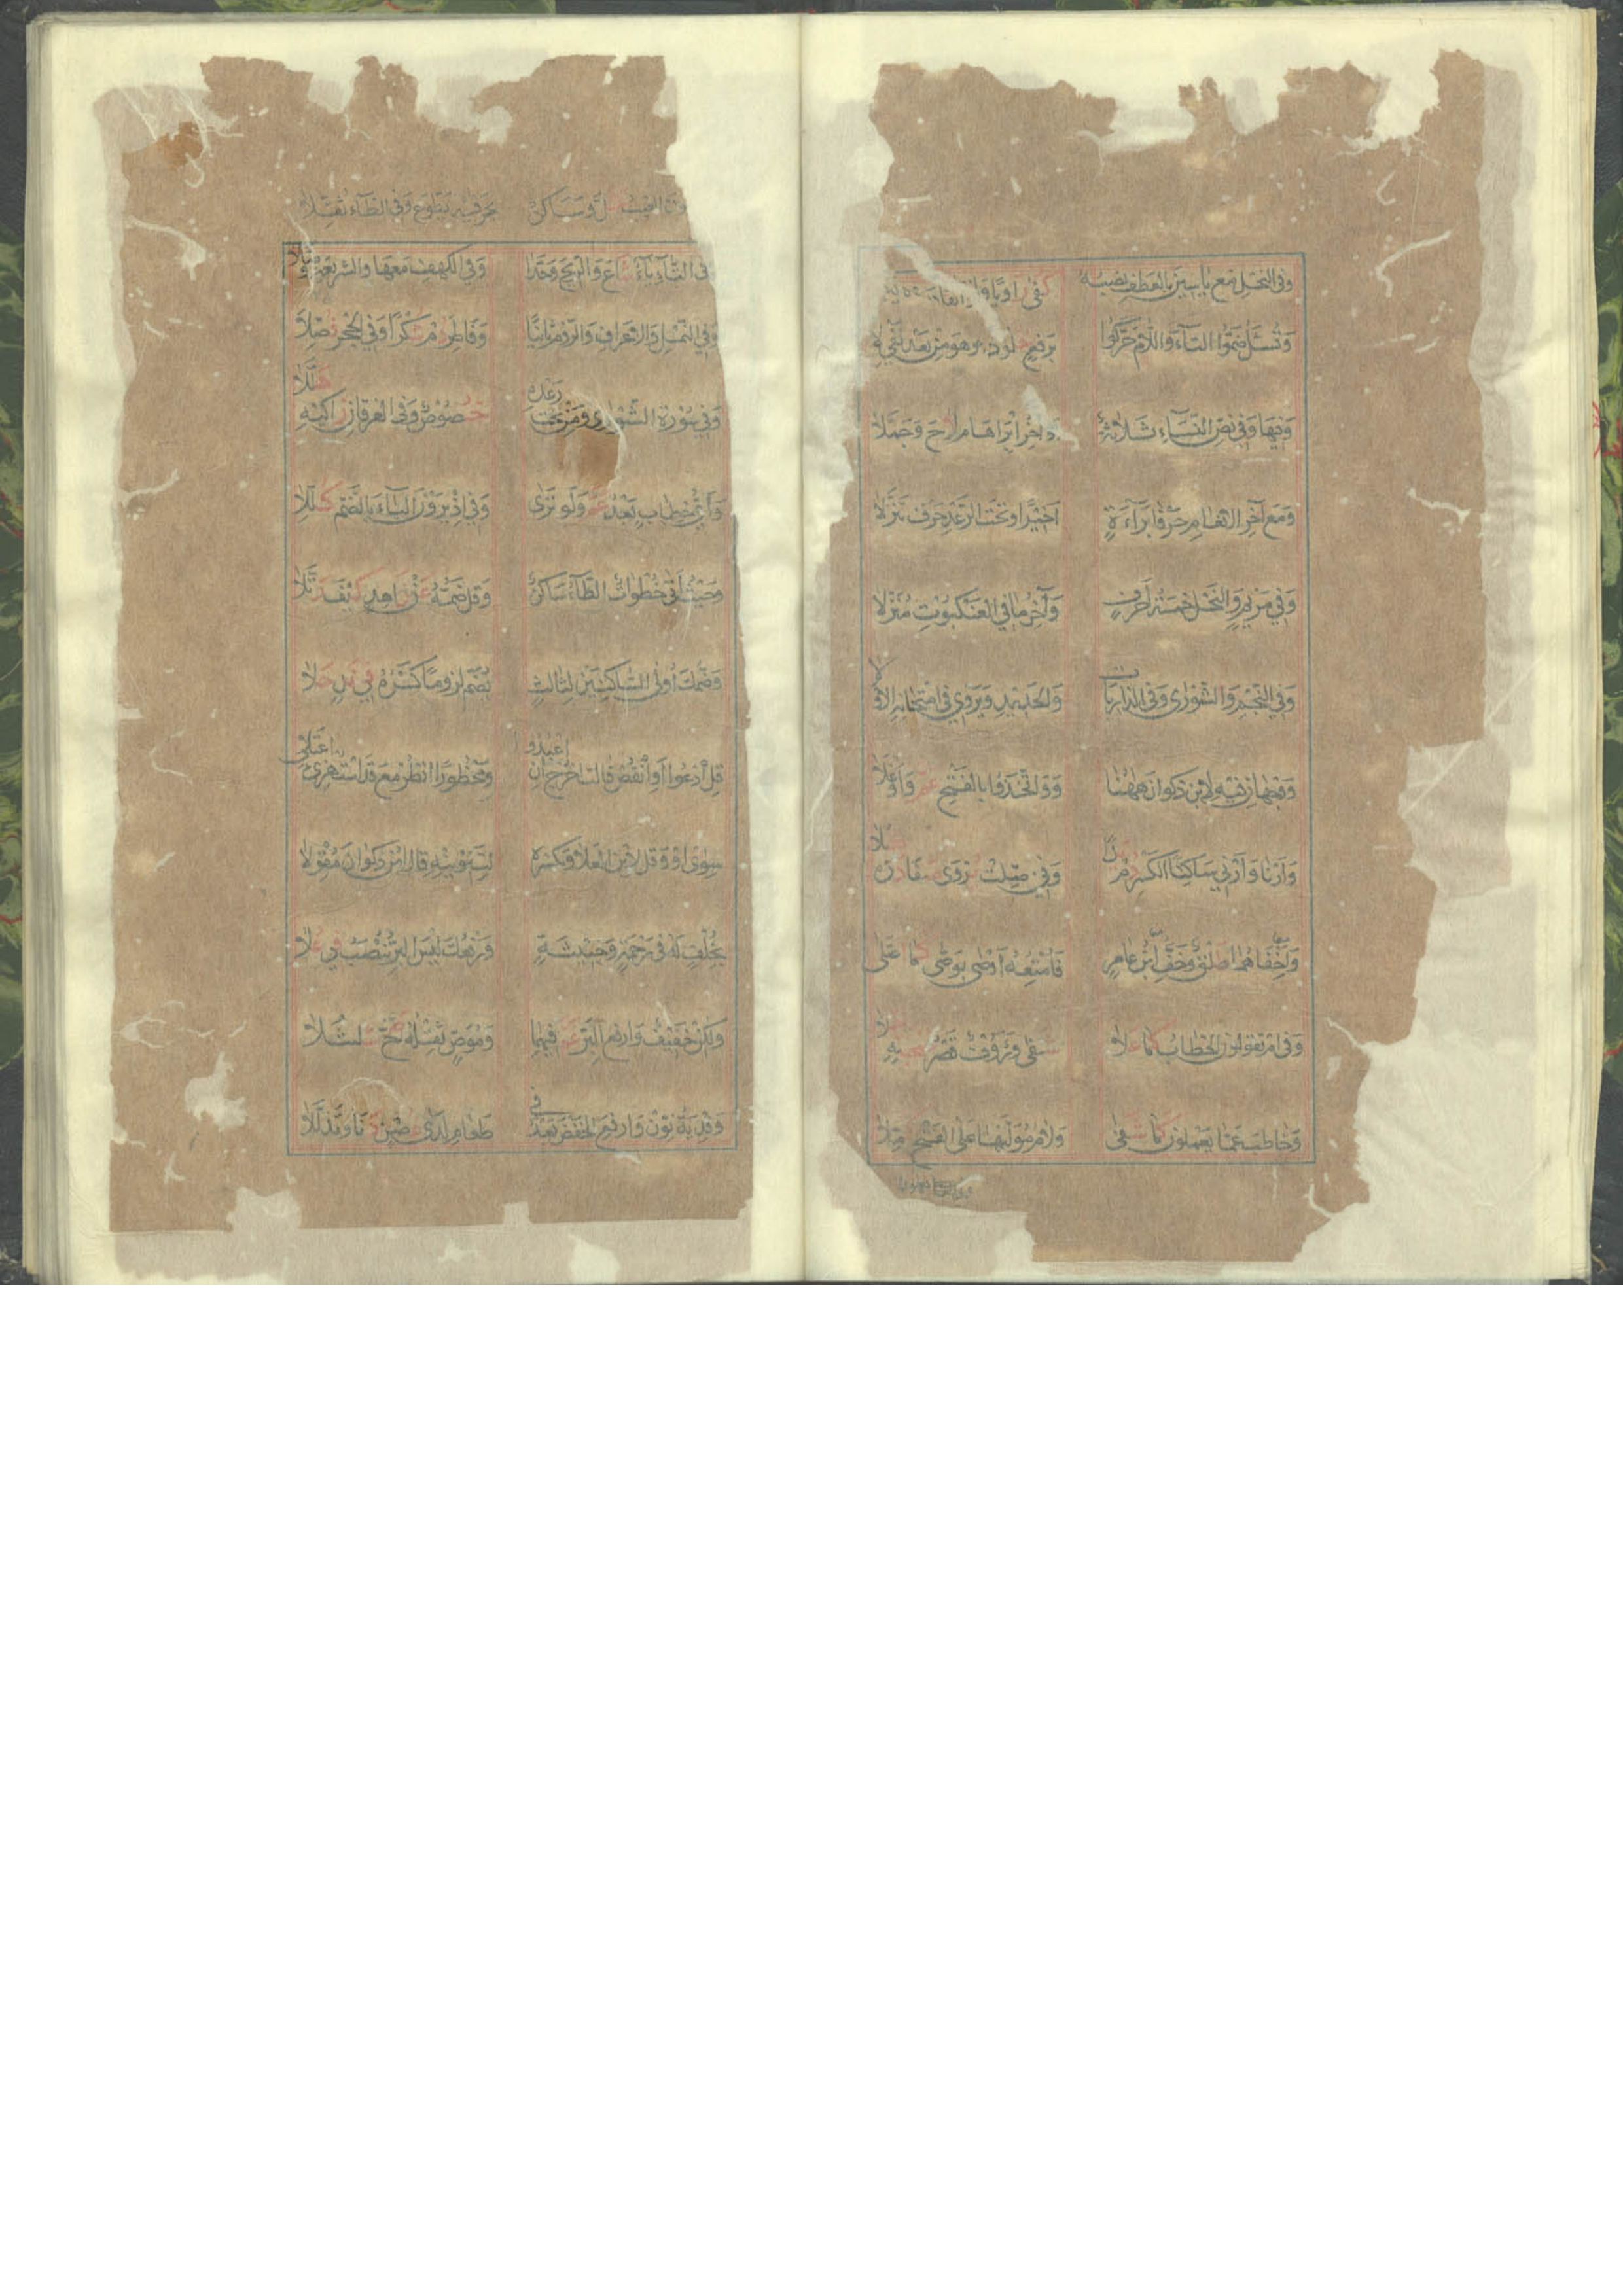 وَفِي النَّحْلِ مَعْ يَاسِينَ بِالْعَطْفِ نَصْبُهُ كَفَى رَاوِيًا
وَتُسْئَلُ ضَمُّوا التَّاءَ وَاللَّامَ حَرَّكُوا بِرَفْعٍ خُلُودًا وَهُوَ مِنْ بَعْدِ نَفْيِ لَا
وَفِيهَا وَفِي نَصِّ النِّسَاءِ ثَلَاثَةٌ أَوَاخِرُ إِبْرَاهَامَ لَاحَ وَجَمَّلَا
وَمَعْ آخِرِ الْأَنْعَامِ حَرْفَا بَرَاءَةٍ أَخِيرًا وَتَحْتَ الرَّعْدِ حَرْفٌ تَنَزَّلَا
وَفِي مَرْيَمٍ وَالنَّحْلِ خَمْسَةُ أَحْرُفٍ وَآخِرُ مَا فِي الْعَنْكَبُوتِ مُنَزَّلَا
وَفِي النَّجْمِ وَالشُّورَى وَفِي الذَّارِيَاتِ وَالْحَدِيدِ وَيَرْوِي فِي امْتِحَانِهِ الْأَوَّلَا
وَوَجْهَانِ فِيهِ لِابْنِ ذَكْوَانَ هَهُنَا وَوَاتَّخِذُوا بِالْفَتْحِ عَمَّ وَأَوْغَلَا
وَأَرْنَا وَأَرْنِي سَاكِنَا الْكَسْرِ دُمْ يَدًا وَفِي فُصِّلَتْ يُرْوَى صَفَا دَرِّهِ كُلَا
وَأَخْفَاهُمَا طَلْقٌ وَخَفُّ ابْنِ عَامِرٍ فَأُمْتِعُهُ أَوْصَى بِوَصَّى كَمَا اعْتَلَى
وَفِي أَمْ تَقُولُونَ الْخِطَابُ كَمَا عَلَا شَفَى وَرَءُوفٌ قَصْرُ صُحْبَتِهِ حَلَا
وَخَاطَبَ عَمَّا يَعْمَلُونَ كَمَا شَفَى وَلَامُ مُوَلِّيهَا عَلَى الْفَتْحِ كُمِّلَا
وَسَاكِنٌ بِحَرْفَيْهِ يَطَّوَّعْ وَفِي الطَّاءِ ثُقِّلَا
وَفِي التَّاءِ يَاءٌ شَاعَ وَالرِّيحَ وَحَّدَا وَفِي الْكَهْفِ مَعْهَا وَالشَّرِيعَةِ وَصَّلَا
وَفِي النَّمْلِ وَالْأَعْرَافِ وَالرُّومِ ثَانِيًا وَفَاطِرِ دُمْ شُكْرًا وَفِي الْحِجْرِ فُصِّلَا
وَفِي سُورَةِ الشُّورَى وَمِنْ تَحْتِ رَعْدِهِ خُصُوصٌ وَفِي الْفُرْقَانِ زَاكِيهِ هَلَّلَا
وَأَيُّ خِطَابٍ بَعْدُ عَمَّ وَلَوْ تَرَى وَفِي إِذْ يَرَوْنَ الْيَاءُ بِالضَّمِّ كُلِّلَا
وَحَيْثُ أَتَى خُطْوَاتٌ الطَّاءُ سَاكِنٌ وَقُلْ ضَمُّهُ عَنْ زَاهِدٍ كَيْفَ رَتَّلَا
وَضَمُّكَ أُولَى السَّاكِنَيْنِ لِثَالِثٍ يُضَمُّ لُزُومًا كَسْرُهُ فِي نَدٍ حَلَا
قُلِ ادْعُوا أَوِ انْقُصْ قَالَتِ اخْرُجْ أَنِ اعْبُدُوا وَمَحْظُورًا انْظُرْ مَعْ قَدِ اسْتُهْزِئَ اعْتَلَى
سِوَى أَوْ وَقُلْ لِابْنِ الْعَلَا وَبِكَسْرِهِ لِتَنْوِينِهِ قَالَ ابْنُ ذَكْوَانَ مُقْوِلَا
بِخُلْفٍ لَهُ فِي رَحْمَةٍ وَخَبِيثَةٍ وَرَفْعُكَ لَيْسَ الْبِرُّ يُنْصَبُ فِي عُلَا
وَلَكِنْ خَفِيفٌ وَارْفَعِ الْبِرَّ عَمَّ فِيهِمَا وَمُوَصٍّ ثِقْلُهُ صَحَّ شُلْشُلَا
وَفِدْيَةُ نَوِّنْ وَارْفَعِ الْخَفْضَ بَعْدُ فِي طَعَامٍ لَدَى غُصْنٍ دَنَا وَتَذَلَّلَا